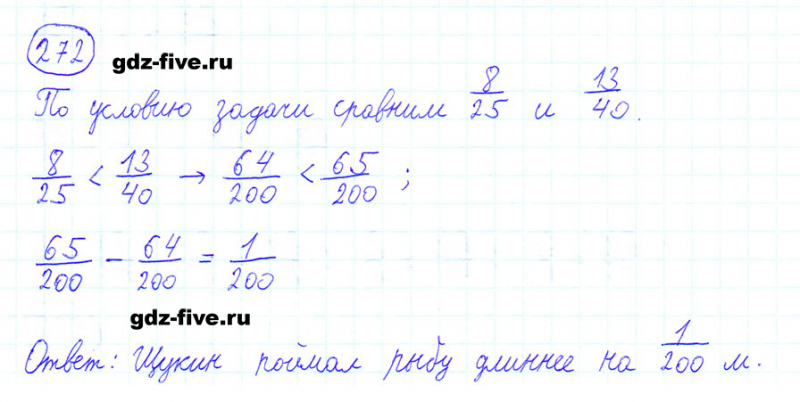 272
gdz-five.ru
По условию задачи сравним 8/25 и 13/40.
8/25 < 13/40 → 64/200 < 65/200 ;
65/200 - 64/200 = 1/200
gdz-five.ru
Ответ: Щукин поймал рыбу длиннее на 1/200 м.